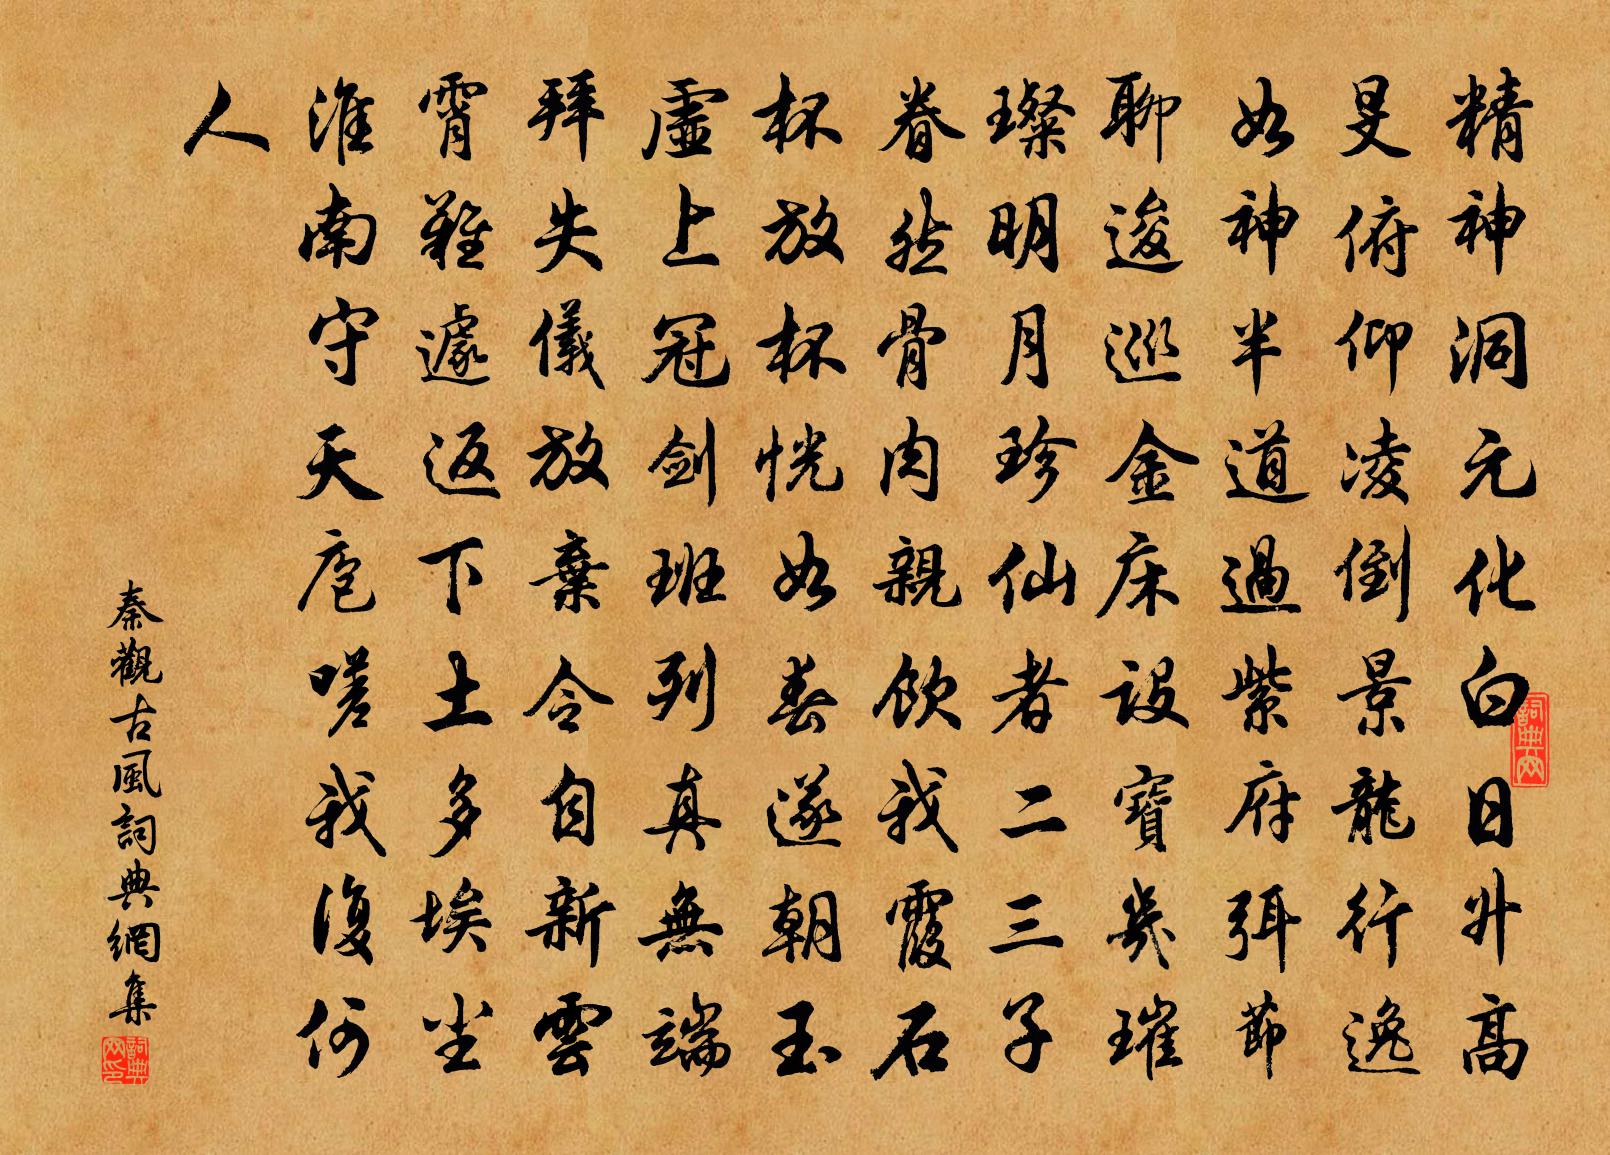 精神洞元化白日升高
旻俯仰凌倒景龍行逸
如神半道過紫府弭節
聊逡巡金床設寶幾璀
璨明月珍仙者二三子
眷然骨肉親飲我霞石
杯放杯恍如春遂朝玉
虛上冠劍班列真無端
拜失儀放棄令自新雲
霄難遽返下土多埃尘
淮南守天庖嗟我復何
人
秦觀古風詞典網集
詞典网
詞典网印